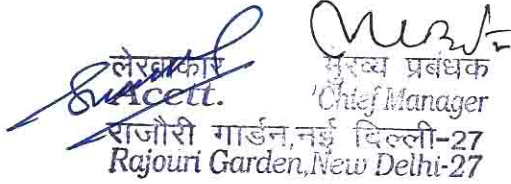 लेखाकार मुख्य प्रबंधक
Acctt. Chief Manager
राजौरी गार्डन,नई दिल्ली-27
Rajouri Garden,New Delhi-27